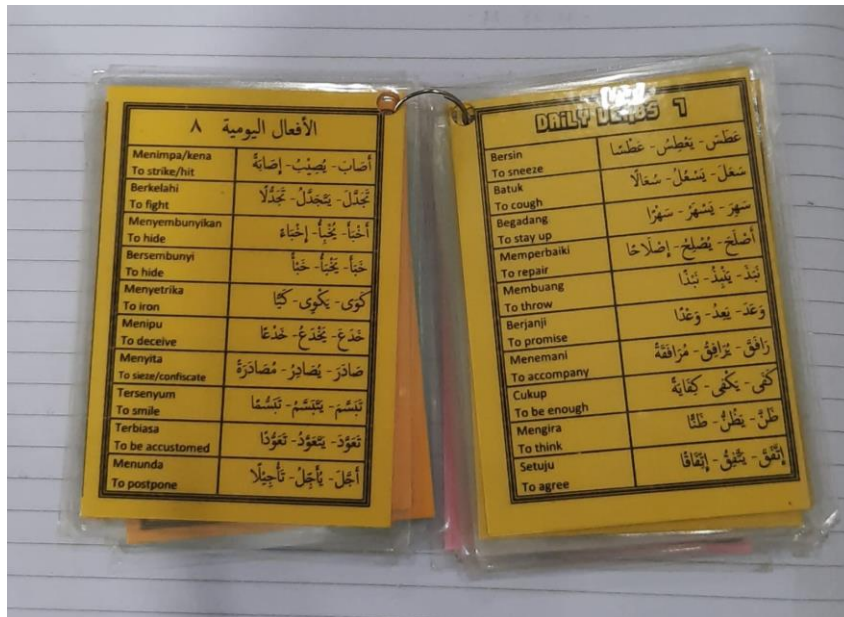 الأفعال اليومية ٨
Menimpa/kena
To strike/hit
أَصَابَ - يُصِيْبُ - إِصَابَةً
Berkelahi
To fight
تَجَدَّلَ - يَتَجَدَّلُ - تَجَدُّلًا
Menyembunyikan
To hide
أَخْبَأَ - يُخْبِأُ - إِخْبَاءً
Bersembunyi
To hide
خَبَأَ - يَخْبَأُ - خَبْأً
Menyetrika
To iron
كَوَى - يَكْوِى - كَيًّا
Menipu
To deceive
خَدَعَ - يَخْدَعُ - خَدْعًا
Menyita
To sieze/confiscate
صَادَرَ - يُصَادِرُ - مُصَادَرَةً
Tersenyum
To smile
تَبَسَّمَ - يَتَبَسَّمُ - تَبَسُّمًا
Terbiasa
To be accustomed
تَعَوَّدَ - يَتَعَوَّدُ - تَعَوُّدًا
Menunda
To postpone
أَجَّلَ - يُأَجِّلُ - تَأْجِيْلًا
DAILY VERBS 7
Bersin
To sneeze
عَطَسَ - يَعْطِسُ - عَطْسًا
Batuk
To cough
سَعَلَ - يَسْعُلُ - سُعَالًا
Begadang
To stay up
سَهِرَ - يَسْهَرُ - سَهْرًا
Memperbaiki
To repair
أَصْلَحَ - يُصْلِحُ - إِصْلَاحًا
Membuang
To throw
نَبَذَ - يَنْبِذُ - نَبْذًا
Berjanji
To promise
وَعَدَ - يَعِدُ - وَعْدًا
Menemani
To accompany
رَافَقَ - يُرَافِقُ - مُرَافَقَةً
Cukup
To be enough
كَفَى - يَكْفِى - كِفَايَةً
Mengira
To think
ظَنَّ - يَظُنُّ - ظَنًّا
Setuju
To agree
إِتَّفَقَ - يَتَّفِقُ - إِتِّفَاقًا